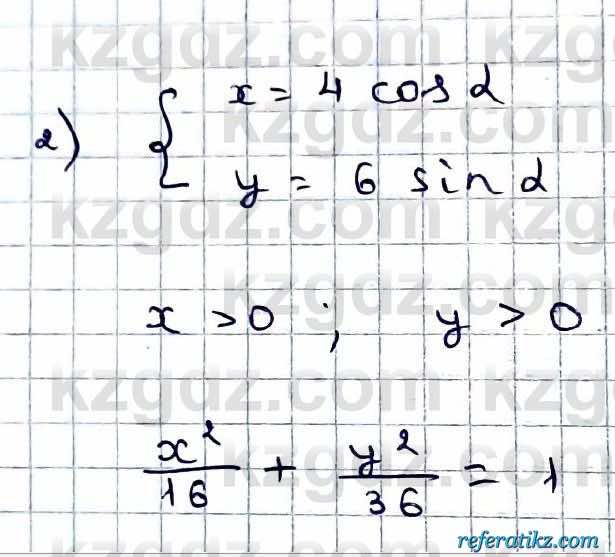 2) { x = 4 cos α
y = 6 sin α
x > 0 ; y > 0
x²/16 + y²/36 = 1
kzgdz.com
referatikz.com